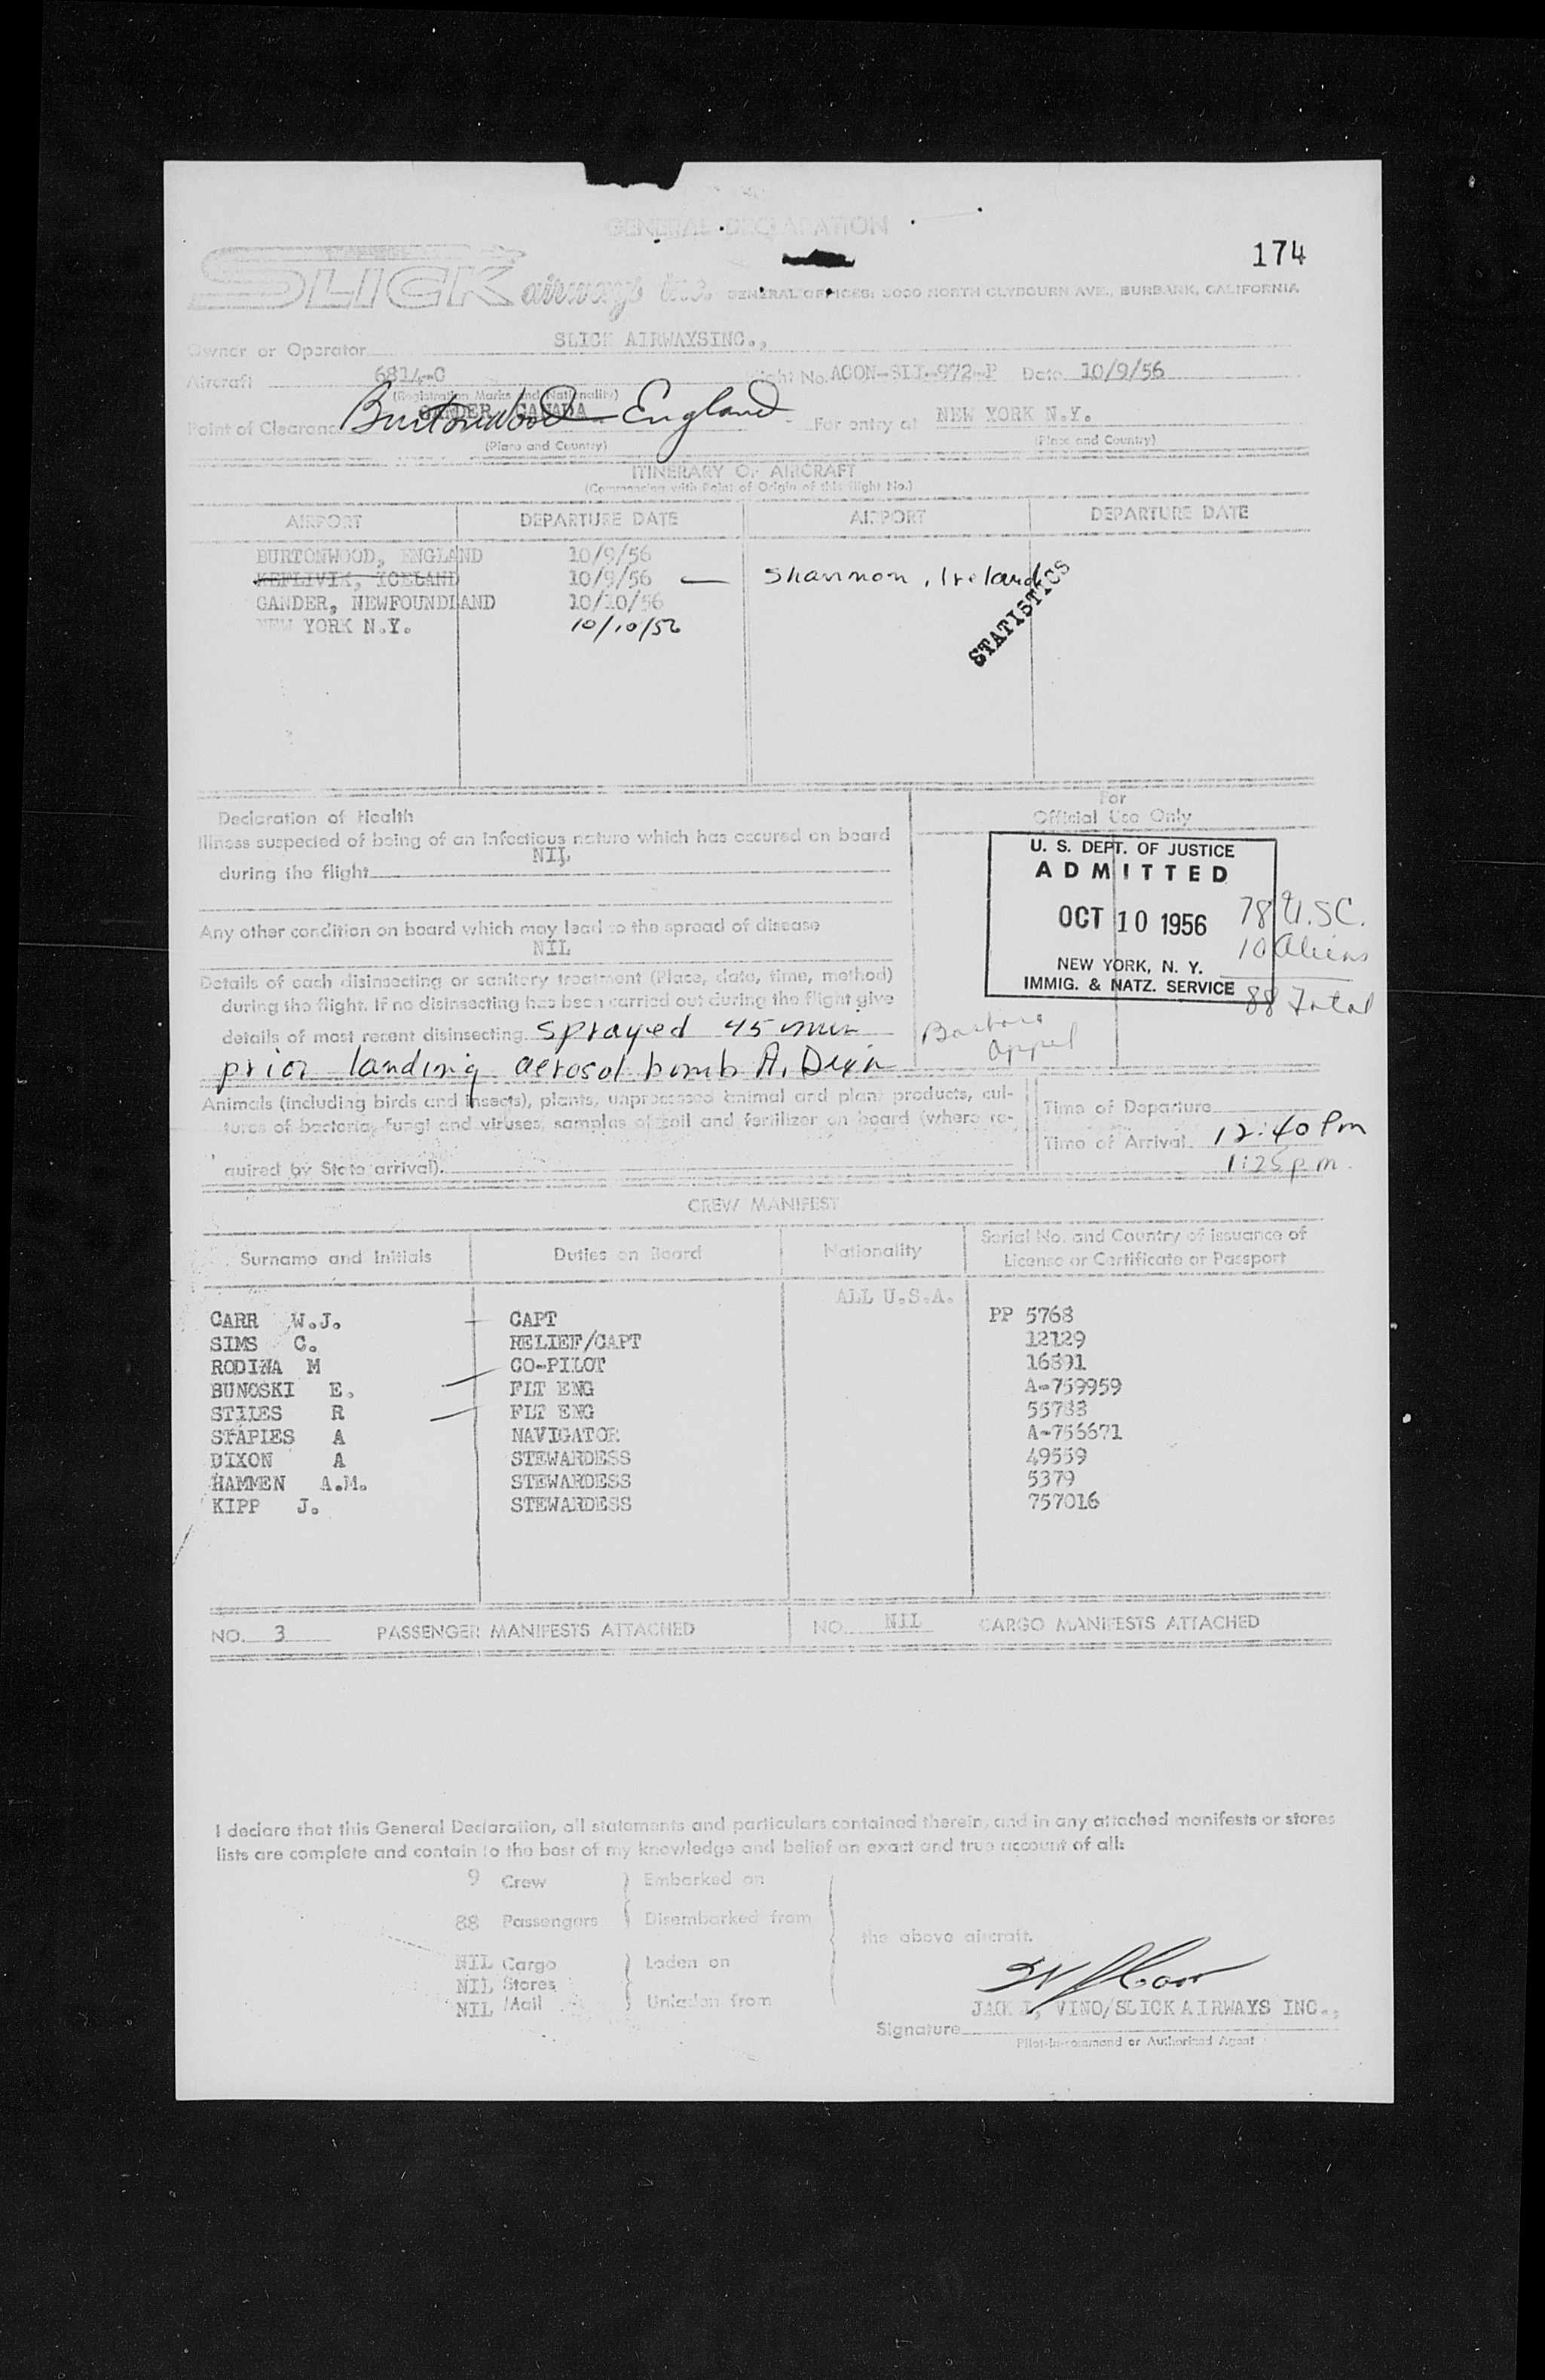 GENERAL DECLARATION
174
SLICK airways inc. GENERAL OFFICES: 3000 NORTH CLYBOURN AVE., BURBANK, CALIFORNIA
Owner or Operator SLICK AIRWAYSINC.,
Aircraft 6814-C Flight No. ACON-SLI-972-P Date 10/9/56
(Registration Marks and Nationality)
GANDER, CANADA
Point of Clearance Burtonwood England For entry at NEW YORK N.Y.
(Place and Country) (Place and Country)
ITINERARY OF AIRCRAFT
(Commencing with Point of Origin of this flight No.)
AIRPORT DEPARTURE DATE AIRPORT DEPARTURE DATE
BURTONWOOD, ENGLAND 10/9/56
KEFLIVIK, ICELAND 10/9/56 — Shannon, Ireland
GANDER, NEWFOUNDLAND 10/10/56
NEW YORK N.Y. 10/10/56
STATISTICS
Declaration of Health
Illness suspected of being of an infectious nature which has occured on board
during the flight NIL
Any other condition on board which may lead to the spread of disease
NIL
Details of each disinsecting or sanitary treatment (Place, date, time, method)
during the flight. If no disinsecting has been carried out during the flight give
details of most recent disinsecting. Sprayed 45 min
prior landing aerosol bomb A.
For
Official Use Only
U. S. DEPT. OF JUSTICE
ADMITTED
OCT 10 1956
NEW YORK, N. Y.
IMMIG. & NATZ. SERVICE
78 U.SC.
10 aliens
88 Total
Barbara
Appel
Animals (including birds and insects), plants, unprocessed animal and plant products, cul-
tures of bacteria, fungi and viruses, samples of soil and fertilizer on board (where re-
quired by State arrival).
Time of Departure
Time of Arrival 12:40 Pm
1:25 p m.
CREW MANIFEST
Surname and Initials Duties on Board Nationality Serial No. and Country of issuance of
License or Certificate or Passport
ALL U.S.A.
CARR W.J. CAPT PP 5768
SIMS C. RELIEF/CAPT 12129
RODINA M CO-PILOT 16891
BUNOSKI E. FLT ENG A-759959
STILES R FLT ENG 55788
STAPIES A NAVIGATOR A-756671
DIXON A STEWARDESS 49559
HAMMEN A.M. STEWARDESS 5379
KIPP J. STEWARDESS 757016
NO. 3 PASSENGER MANIFESTS ATTACHED NO. NIL CARGO MANIFESTS ATTACHED
I declare that this General Declaration, all statements and particulars contained therein, and in any attached manifests or stores
lists are complete and contain to the best of my knowledge and belief an exact and true account of all:
9 Crew Embarked on
88 Passengers Disembarked from
the above aircraft.
NIL Cargo Laden on
NIL Stores
NIL Mail Unladen from
JACK L, VINO/SLICK AIRWAYS INC.,
Signature
Pilot-in-command or Authorized Agent